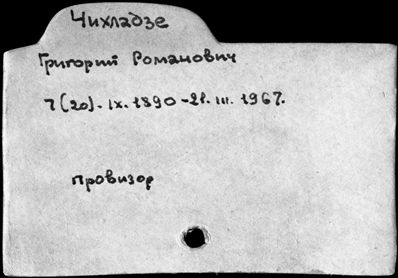 Чихладзе
Григорий Романович
7(20).IX.1890-21.III.1967.
провизор